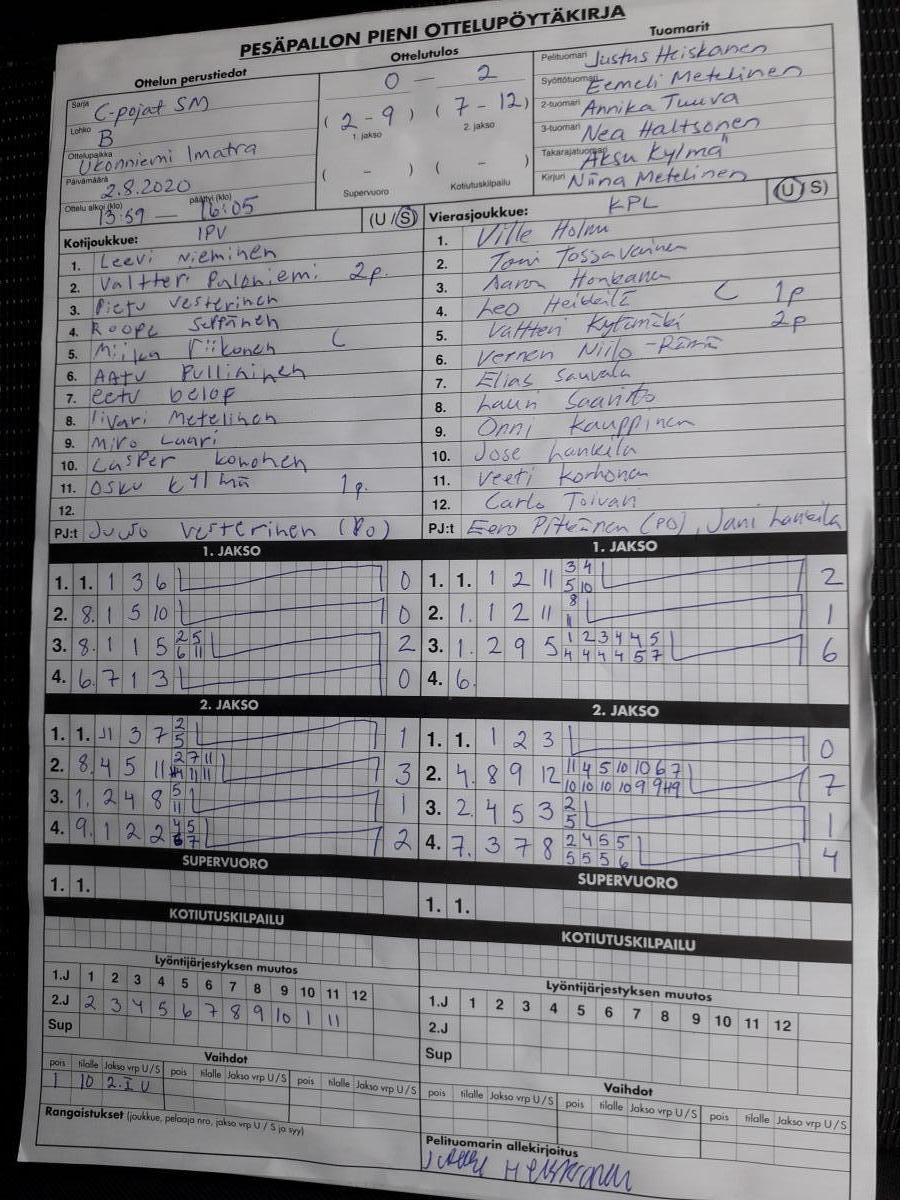 PESÄPALLON PIENI OTTELUPÖYTÄKIRJA
Ottelun perustiedot
Sarja C-pojat SM
Lohko B
Ottelupaikka Ukonniemi Imatra
Päivämäärä 2.8.2020
Ottelu alkoi (klo) 13:59 — päättyi (klo) 16:05
Ottelutulos
0 — 2
( 2 - 9 ) ( 7 - 12 )
1. jakso 2. jakso
( - ) ( - )
Supervuoro Kotiutuskilpailu
Tuomarit
Pelituomari Justus Heiskanen
Syöttötuomari Eemeli Metelinen
2-tuomari Annika Tuuva
3-tuomari Nea Haltsonen
Takarajatuomari Aksu Kylmä
Kirjuri Niina Metelinen
Kotijoukkue: IPV (U/S)
1. Leevi Nieminen
2. Valtteri Paloniemi 2p.
3. Pietu Vesterinen
4. Roope Seppänen
5. Miika Tiikonen C
6. AATU Pulliainen
7. eetu belof
8. Iivari Metelinen
9. Miro Laari
10. Casper konohen
11. OSKU KYLMÄ 1p.
12.
PJ:t Juuso Vesterinen (Po)
Vierasjoukkue: KPL (U/S)
1. Ville Holm
2. Toni Tossavainen
3. Aaron Honkanen
4. Leo Heikkilä C 1p
5. Valtteri Kytömäki 2p
6. Verneri Niilo-Rämä
7. Elias Sauvala
8. Lauri Saaristo
9. Onni Kauppinen
10. Jose Lankila
11. Veeti Korhonen
12. Carlo Toivari
PJ:t Eero Pitkänen (PO), Jani Lankila
1. JAKSO
1. 1. 1 3 6 0
2. 8. 1 5 10 0
3. 8. 1 1 5 2 5 6 11 2
4. 6. 7 1 3 0
1. JAKSO
1. 1. 1 2 11 3 4 5 10 2
2. 1. 1 2 11 8 11 1
3. 1. 2 9 5 1 2 3 4 4 5 4 4 4 4 5 7 6
4. 6.
2. JAKSO
1. 1. 11 3 7 2 5 1
2. 8. 4 5 11 2 7 11 11 11 3
3. 1. 2 4 8 5 11 1
4. 9. 1 2 2 4 5 6 7 2
2. JAKSO
1. 1. 1 2 3 0
2. 4. 8 9 12 11 4 5 10 10 6 7 10 10 10 10 9 9 9 7
3. 2. 4 5 3 2 5 1
4. 7. 3 7 8 2 4 5 5 5 5 5 6 4
SUPERVUORO
1. 1.
SUPERVUORO
1. 1.
KOTIUTUSKILPAILU
KOTIUTUSKILPAILU
Lyöntijärjestyksen muutos
1.J 1 2 3 4 5 6 7 8 9 10 11 12
2.J 2 3 4 5 6 7 8 9 10 1 11
Sup
Lyöntijärjestyksen muutos
1.J 1 2 3 4 5 6 7 8 9 10 11 12
2.J
Sup
Vaihdot
pois tilalle Jakso vrp U/S pois tilalle Jakso vrp U/S pois tilalle Jakso vrp U/S
1 10 2.I U
Vaihdot
pois tilalle Jakso vrp U/S pois tilalle Jakso vrp U/S pois tilalle Jakso vrp U/S
Rangaistukset (joukkue, pelaaja nro, jakso vrp U/S ja syy)
Pelituomarin allekirjoitus
Justus Heiskanen